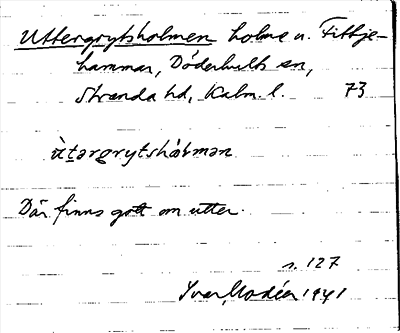 Uttergrytsholmen holme n. Fittje-
hammar, Döderhults sn,
Stranda hd, Kalm. l. 73
ùtərgrytshɔ́lmən
Där finns gott om utter.
s. 127
Ivar Modéer 1941